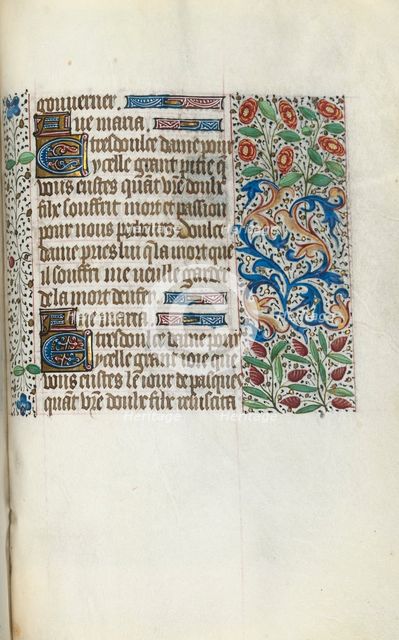 gouverner.
Aue maria.
O tresdoulce dame pour
ycelle grant pitie q̄
vous eustes quāt vr̄e doulx
filz souffrit mort et passion
pour nous pecheurs doulce
dame pries lui q̄ la mort que
il souffri me vueille garder
de la mort denfer.
Aue maria.
O tresdoulce dame pour
ycelle grant ioie que
vous eustes le iour de pasques
quāt vr̄e doulx filz resuscita